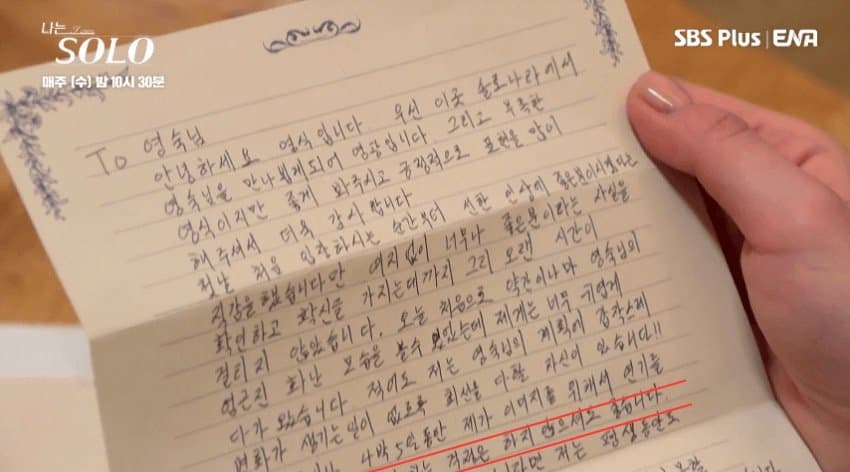 나는 SOLO
매주 [수] 밤 10시 30분
SBS Plus | ENA
To 영숙님
안녕하세요 영식입니다. 우선 이곳 솔로나라에서
영숙님을 만나뵙게되어 영광입니다 그리고 부족한
영식이지만 좋게 봐주시고 긍정적으로 표현을 많이
해주셔서 더욱 감사합니다
첫날 처음 입장하시는 순간부터 선한 인상에 좋은분이시겠다는
직감을 했습니다만 여지없이 너무나 좋은분이라는 사실을
확인하고 확신을 가지는데까지 그리 오랜 시간이
걸리지 않았습니다. 오늘 처음으로 약간이나마 영숙님의
엄근진 화난 모습을 볼수 있었는데 제게는 너무 귀엽게
다가 왔습니다 적어도 저는 영숙님의 계획에 갑작스레
변화가 생기는일이 없도록 최선을 다할 자신이 있습니다!!
4박 5일동안 제가 이미지를 위해서 연기를
걱정은 하지 않으셔도 좋습니다.
저는 평생동안도